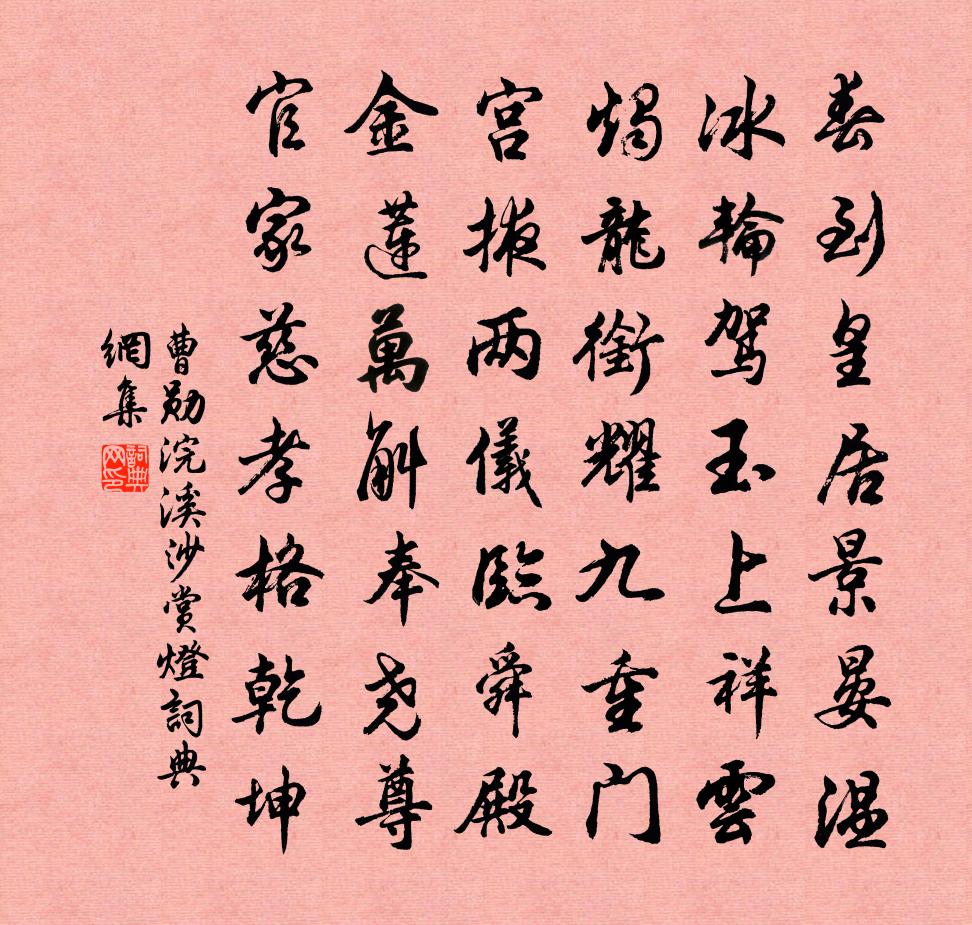 春到皇居景晏温
冰輪駕玉上祥雲
燭龍銜耀九重门
宫掖两儀臨舜殿
金蓮萬斛奉尧尊
官家慈孝格乾坤
曹勋浣溪沙赏燈詞典
網集
詞典
网印